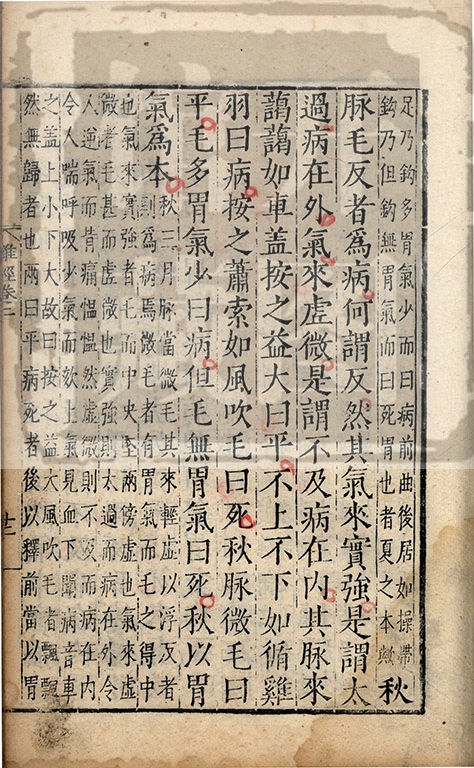 足乃鈎多胃氣少而曰病前曲後居如操帶
鈎乃但鈎無胃氣而曰死胃也者夏之本歟
秋
脉毛反者爲病何謂反然其氣來實強是謂太
過病在外氣來虛微是謂不及病在内其脉來
藹藹如車盖按之益大曰平不上不下如循雞
羽曰病按之蕭索如風吹毛曰死秋脉微毛曰
平毛多胃氣少曰病但毛無胃氣曰死秋以胃
氣爲本
秋三月脉當微毛其來輕虛以浮及者
則爲病焉微毛者有胃氣而毛之得中
也氣來實強者毛而中央堅兩傍虛也氣來虛
微者毛甚而虛微也實強則太過而病在外令
人逆氣而背痛慍慍然虛微則不及而病在内
令人喘呼吸少氣而欬上氣見血下聞病音車
之盖上小下大故曰按之益大風吹毛者飄飄
然無歸者也兩曰平病死者後以釋前當以胃
難經卷二
十二